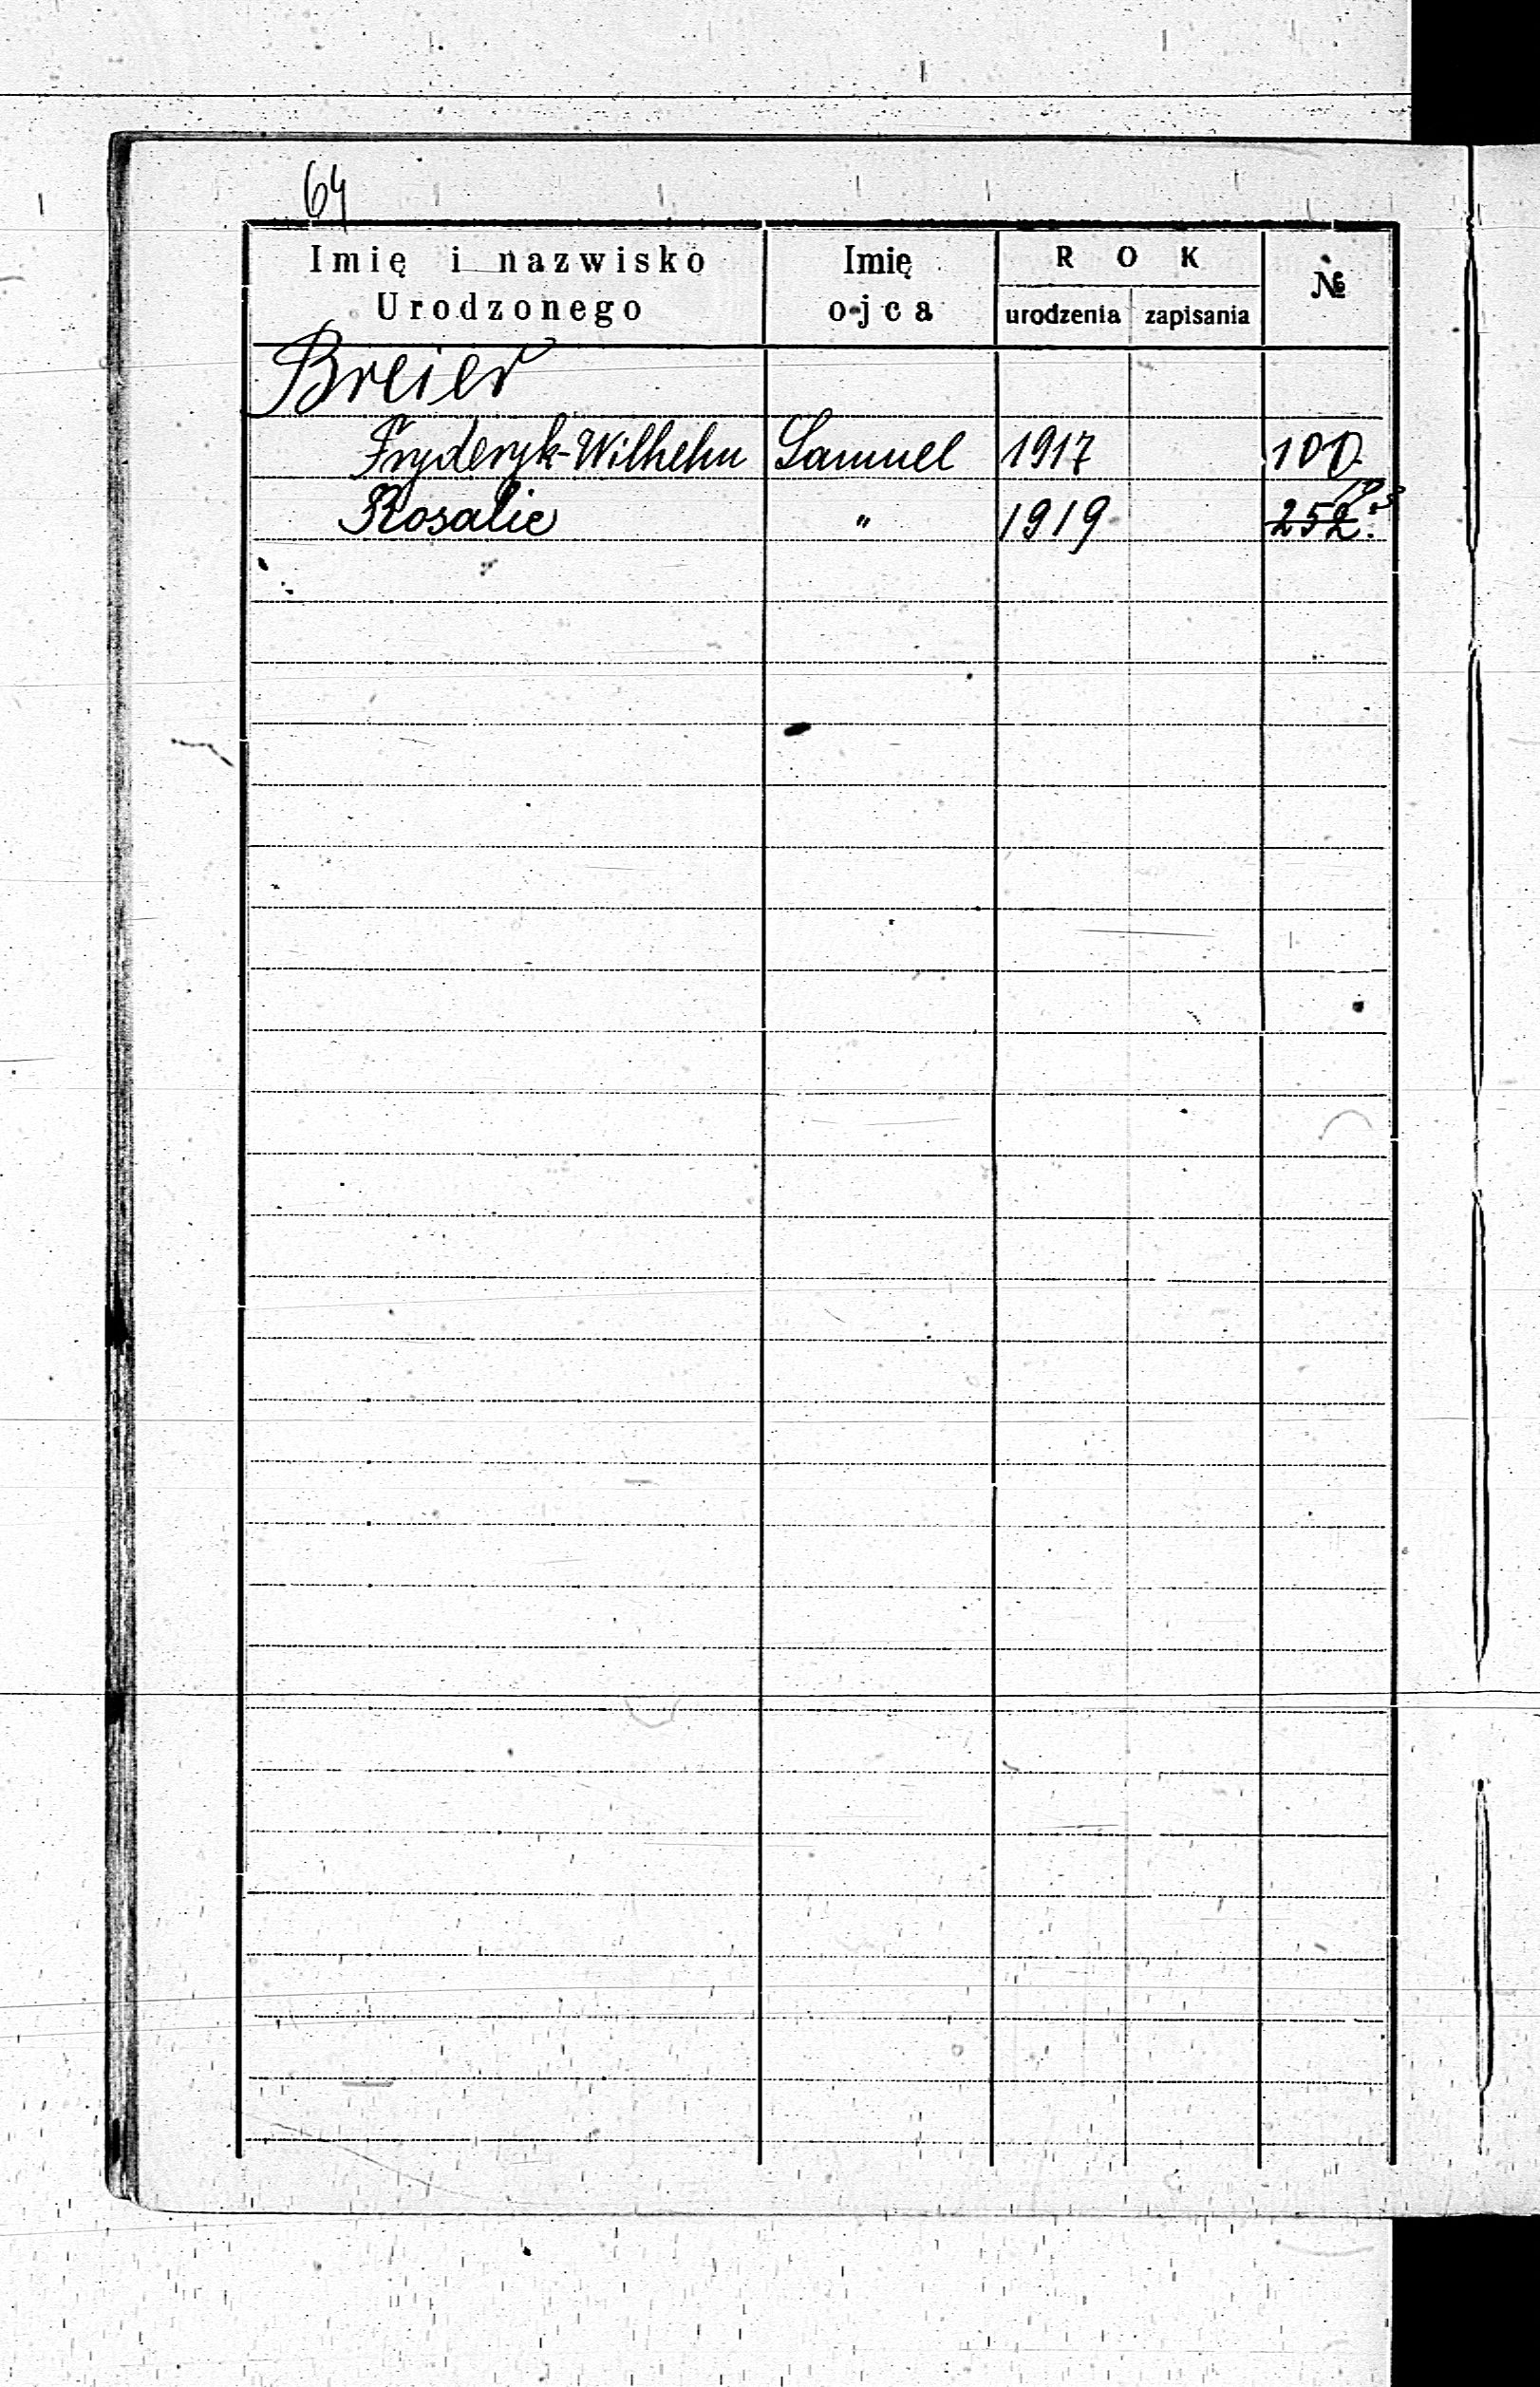 64
Imię i nazwisko Urodzonego Imię ojca ROK urodzenia zapisania №
Breier
Fryderyk-Wilhelm Samuel 1917 100
Rosalie " 1919 252.